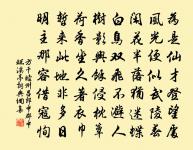 為是仙才登望處
風光便似武陵春
閑花半落猶迷蝶
白鳥雙飛不避人
樹影興餘侵枕簟
荷香坐久著衣巾
暫來此地非多日
明主那容借寇恂
方干睦州呂郎中郡中
環溪亭詞典網集